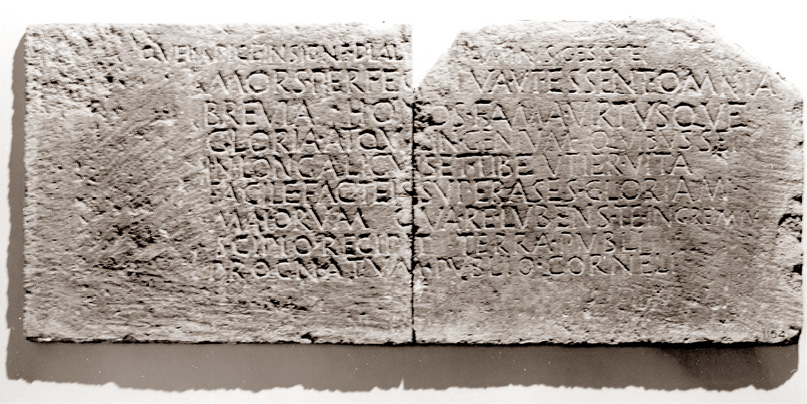 QVEI·APICE·INSIGNE·DIAL MINIS·GESISTE
MORS·PERFE TVA·VT·ESSENT·OMNIA
BREVIA HONOS·FAMA·VIRTVSQVE
GLORIA·ATQVE INGENIVM·QVIBVS·SE
IN·LONGA·LICVISET·TIBE VTIER·VITA
FACILE·FACTEIS·SVPERASES·GLORIAM
MAIORVM VA·RE·LVBENS·TE·IN·GREMIV
SCIPIO·RECIPIT TERRA·PVBLI
PROGNATVM·PVBLIO·CORNELI